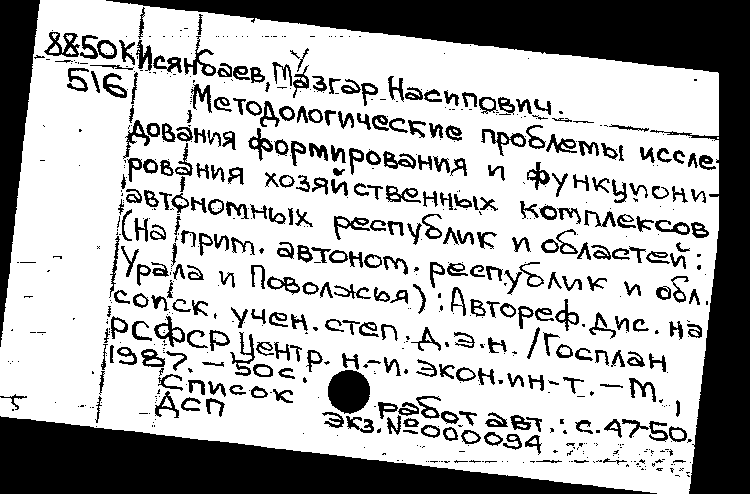 8850К Исянбаев, Мазгар Насипович.
516
Методологические проблемы иссле-
дования формирования и функциони-
рования хозяйственных комплексов
автономных республик и областей:
(На прим. автоном. республик и обл.
Урала и Поволжья): Автореф. дис. на
соиск. учен. степ. д.э.н. /Госплан
РСФСР Центр. н.-и. экон. ин-т. – М.,
1987. – 50с.
Список работ авт.: с.47-50.
ДСП экз. №000094
5